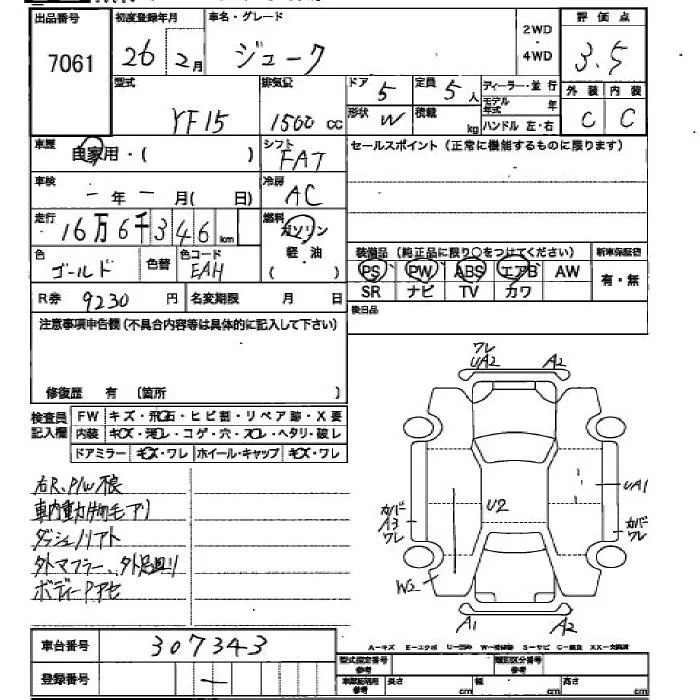 出品番号 初度登録年月 車名・グレード 2WD 評価点
7061 26 2月 ジューク ・ 3.5
4WD
型式 排気量 ドア 5 定員 5人 ディーラー・並行 外装 内装
YF15 1500cc 形状 W 積載 kg モデル年式 年 C C
ハンドル 左・右
車歴 自家用・( ) シフト FAT セールスポイント(正常に機能するものに限ります)
車検 -年-月( 日) 冷房 AC
走行 16万6千346km 燃料 ガソリン
軽油
( )
色 ゴールド 色替 色コード EAH 装備品(純正品に限り○をつけてください) 新車保証書
PS PW ABS エアB AW 有・無
SR ナビ TV カワ
R券 9230円 名変期限 月 日 後日品
注意事項申告欄(不具合内容等は具体的に記入して下さい)
修復歴 有 〔箇所 〕
検査員記入欄 FW キズ・飛石・ヒビ割・リペア跡・X要
内装 キズ・汚レ・コゲ・穴・スレ・ヘタリ・破レ
ドアミラー キズ・ワレ ホイール・キャップ キズ・ワレ
右R,P/W不良
車内動物毛アリ
ダッシュノリアト
外マフラー、外足廻リ
ボディーPアセ
ワレ
UA2 A2
カバド
A3
ワレ
U2
UA1
カバド
ワレ
W2
A1 A2
車台番号 307343
登録番号 -
A-キズ E-エクボ U-凹み W-補修跡 S-サビ C-腐食 XX-交換済
型式指定番号 参考 類別区分番号 参考
長さ cm 幅 cm 高さ cm